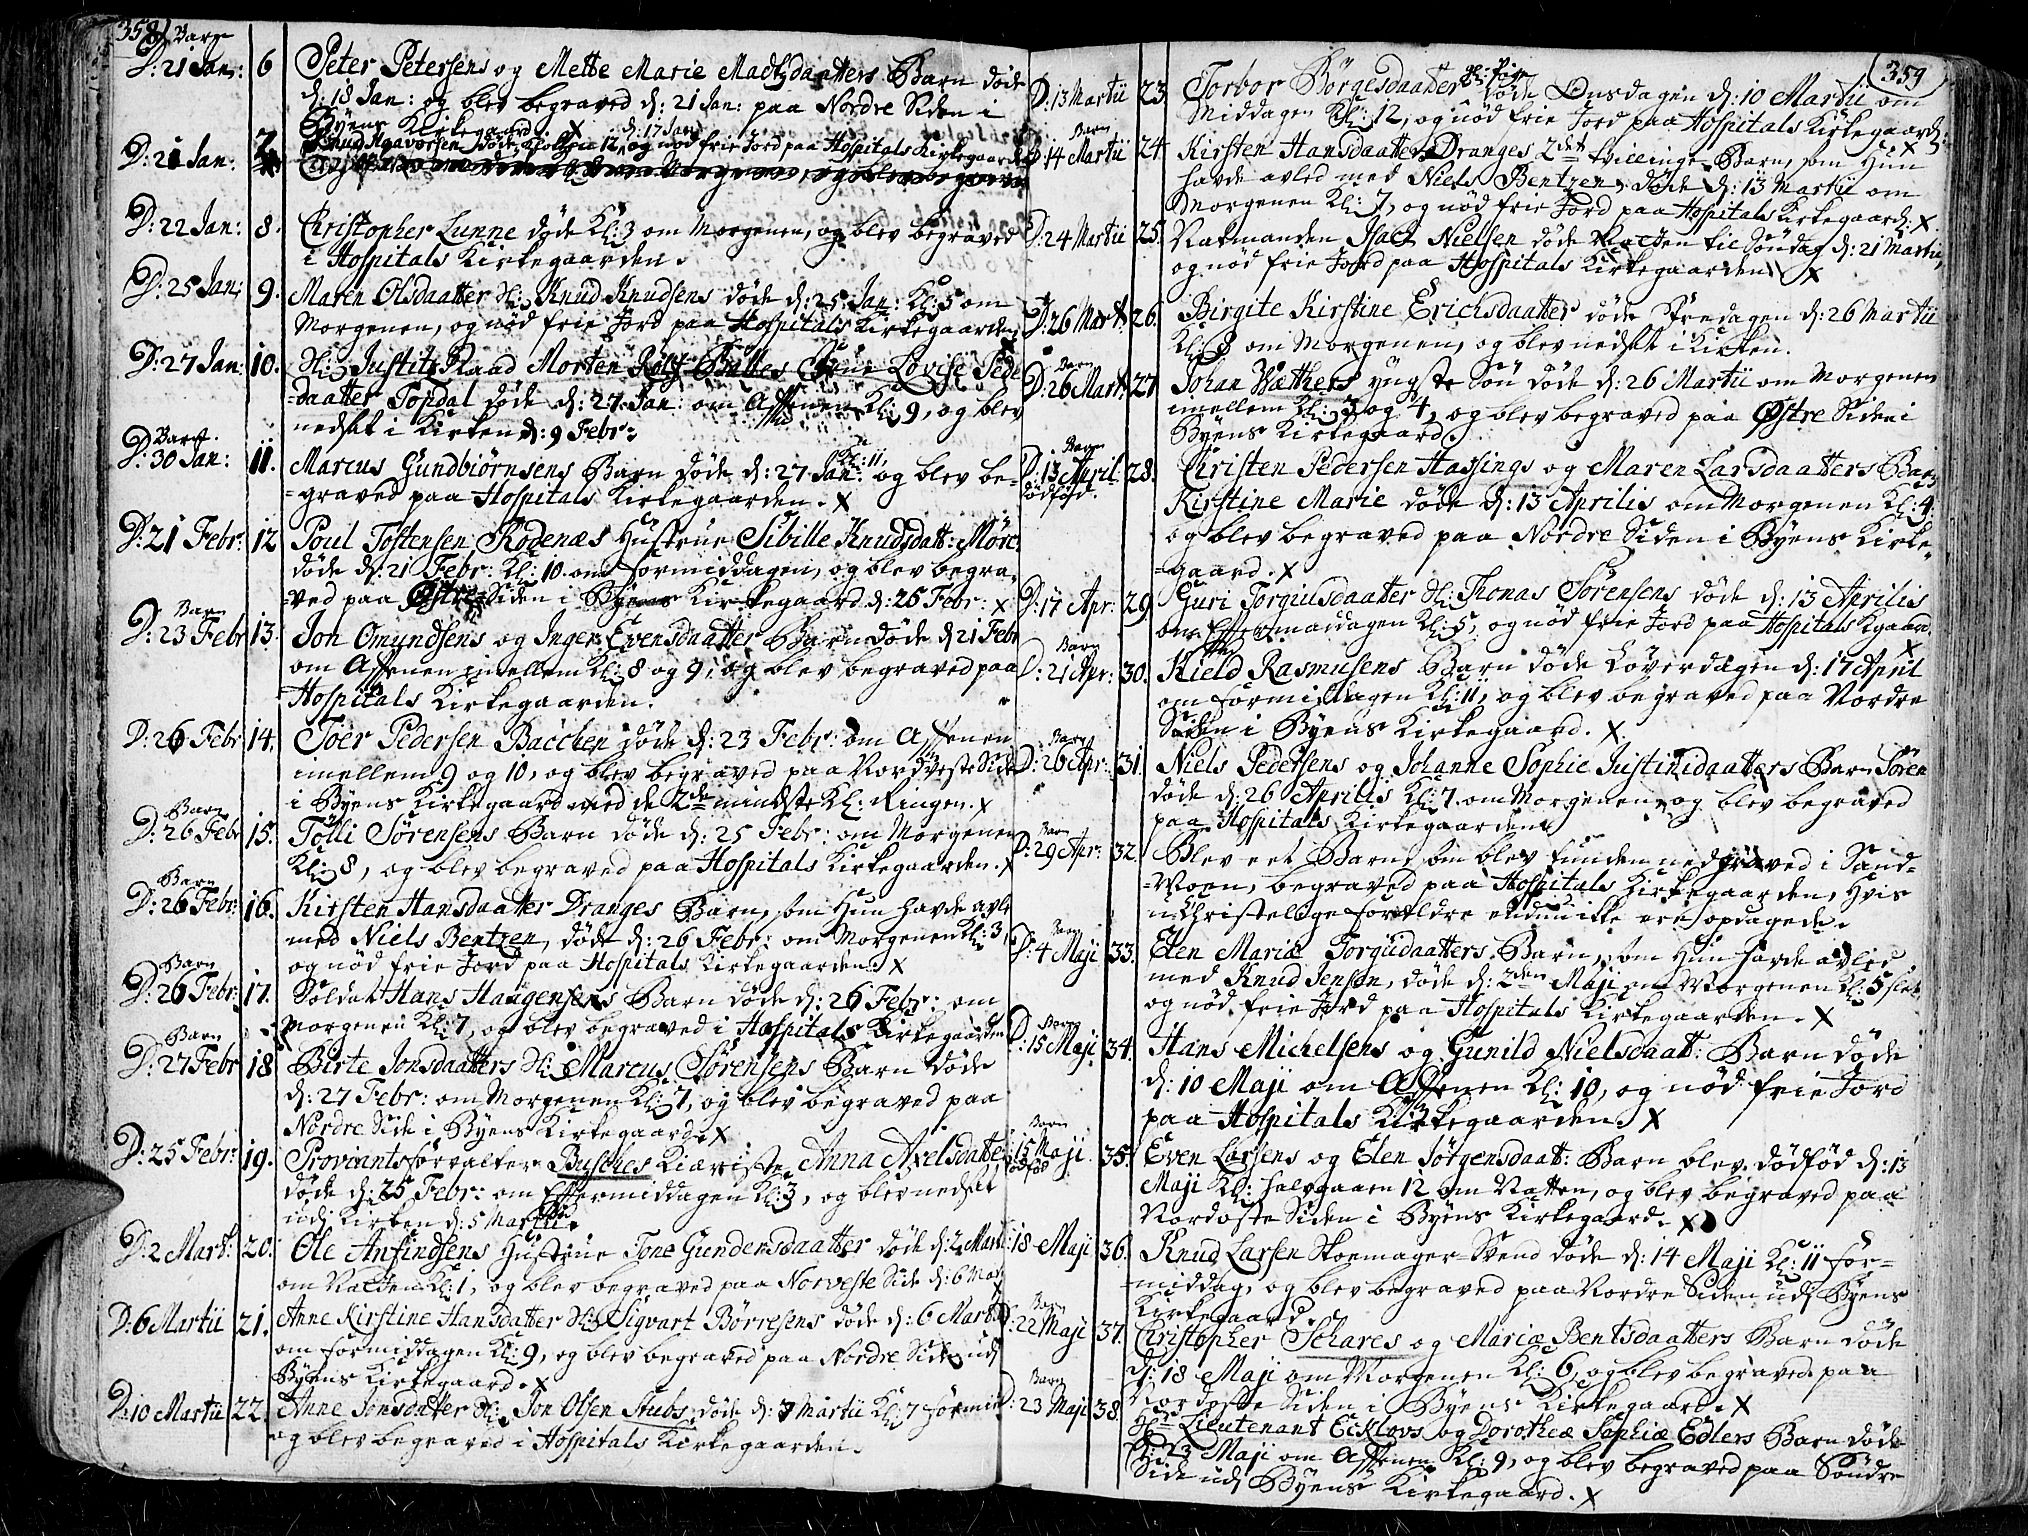 358
Barn
D: 21 Jan: 6 Peter Petersens og Mette Marie Madtzdaatters Barn døde
d: 18 Jan: og blev begraved d: 21 Jan: paa Nordre Siden i
Byens Kirkegaard. X
D: 21 Jan: 7. Knud Aavorsen døde d: 17 Jan Kl: 12, og nød frie Jord paa Hospitals Kirkegaard
D: 22 Jan: 8. Christopher Lunne døde Kl: 3 om Morgenen, og blev begraved
i Hospitals Kirkegaarden.
D: 25 Jan: 9. Maren Olsdaatter Sl: Knud Knudsens døde d: 25 Jan: Kl: 5 om
Morgenen, og nød frie Jord paa Hospitals Kirkegaarden
D: 27 Jan: 10. Sl: Justitz Raad Morten Lovise Pede
-daatter Topdal døde d: 27 Jan: om Afftenen Kl: 9, og blev
nedsat i Kirken d: 9 Febr:
Barn
D: 30 Jan: 11. Marcus Gundbiørnsens Barn døde d: 27 Jan: Kl: 11 og blev be-
-graved paa Hospitals Kirkegaarden. X
D: 21 Febr: 12 Poul Tostensen Rodenæs Hustrue Sibille Knudsdatt: Mørc
døde d: 21 Febr: Kl: 10 om Formiddagen, og blev begra-
-ved paa Østre Siden i Byens Kirkegaard d: 25 Febr: X
Barn
D: 23 Febr 13. Jon Omundsens og Inger Evensdaatter Barn døde d: 21 Febr
om Afftenen imellem Kl: 8 og 9, og blev begraved paa
Hospitals Kirkegaarden.
D: 26 Febr 14. Toer Pedersen Bacchen døde d: 23 Febr: om Afftenen
imellem 9 og 10, og blev begraved paa Nordveste Side
i Byens Kirkegaard med de 2de mindste Kl: Ringen. X
Barn
D: 26 Febr 15. Tølli Sørensens Barn døde d: 25 Febr: om Morgenen
Kl: 8, og blev begraved paa Hospitals Kirkegaarden. X
Barn
D: 26 Febr: 16. Kirsten Hansdaatter Dranges Barn, som Hun havde avlet
med Niels Bentzen, døde d: 26 Febr: om Morgenen Kl: 3,
og nød frie Jord paa Hospitals Kirkegaarden. X
Barn
D: 26 Febr: 17. Soldat Hans Haagensens Barn døde d: 26 Febr: om
Morgenen Kl: 7, og blev begraved i Hospitals Kirkegaarden
Barn
D: 27 Febr 18 Birte Jonsdaatters Sl: Marcus Sørensens Barn døde
d: 27 Febr: om Morgenen Kl: 7, og blev begraved paa
Nordre Side i Byens Kirkegaard. X
D: 25 Febr: 19. Proviantsforvalter Busches Kiæriste Anna Axelsdatter
døde d: 25 Febr: om Efftermiddagen Kl: 3, og blev nedsat
udi Kirken d: 5 Martii
D: 2 Mart: 20. Ole Anfindsens Hustrue Tone Gundersdaatter døde d: 2 Mart
om Natten Kl: 1, og blev begraved paa Norveste Side d: 6 Mart
D: 6 Martii 21. Anne Kirstine Hansdatter Sl: Sigvart Børresens døde d: 6 Mart
om Formiddagen Kl: 9, og blev begraved paa Nordre Side udi
Byens Kirkegaard. X
D: 10 Martii 22. Anne Jonsdatter Sl: Jon Olsen Stubs døde d: 7 Martii Kl: 7 Formid
og blev begraved i Hospitals Kirkegaarden.
359
D: 13 Martii 23. Torbor Børgesdaatter døde Onsdagen d: 10 Martii om
Middagen Kl: 12, og nød frie Jord paa Hospitals Kirkegaard: X
Barn
D: 14 Martii 24. Kirsten Hansdaatter Dranges 2det tvillinge Barn, som Hun
havde avled med Niels Bentzen, døde d: 13 Martii om
Morgenen Kl: 7, og nød frie Jord paa Hospitals Kirkegaard. X
D: 24 Martii 25. Natmanden Isach Nielsen døde Natten til Søndag d: 21 Martii,
og nød frie Jord paa Hospitals Kirkegaarden X
D: 26 Mart: 26. Birgite Kirstine Erichsdaatter døde Fredagen d: 26 Martii
Kl: 8 om Morgenen, og blev nedsat i Kirken.
Barn
D: 26 Mart: 27. Johan Wæthers yngste Søn døde d: 26 Martii om Morgenen
imellem Kl: 3 og 4, og blev begraved paa Østre Siden i
Byens Kirkegaard.
Barn
D: 13 April 28. Christen Pedersen Hassings og Maren Larsdaatters Barn
dødfød. Kirstine Marie døde d: 13 Aprilis om Morgenen Kl: 4.
og blev begraved paa Nordre Siden i Byens Kirke-
-gaard. X
D: 17 Apr: 29. Guri Torgulsdaatter Sl: Thomas Sørensens døde d: 13 Aprilis
om Efftermiddagen Kl: 5, og nød frie Jord paa Hospitals Kgaard. X
Barn
D: 21 Apr: 30. Kield Rasmusens Barn døde Løverdagen d: 17 April
om Formiddagen Kl: 11, og blev begraved paa Nordre
Siden i Byens Kirkegaard. X
Barn
D: 26 Apr: 31. Niels Pedersens og Johanne Sophie Justinidaatters Barn Søren
døde d: 26 Aprilis Kl: 7 om Morgenen, og blev begraved
paa Hospitals Kirkegaarden
Barn
D: 29 Apr: 32. Blev eet Barn, som blev funden nedgraved i Sand-
-Moen, begraved paa Hospitals Kirkegaarden, hvis
uchristelige Forældre endnu ikke ere opdagede.
Barn
D: 4 Maji 33. Elen Mariæ Torgüdaatters Barn, som Hun havde avled
med Knud Jensen, døde d: 2den Maji om Morgenen Kl: 5 slet
og nød frie Jord paa Hospitals Kirkegaarden. X
Barn
D: 15 Maji 34. Hans Michelsens og Gunild Nielsdaatt: Barn døde
d: 10 Maji om Afftenen Kl: 10, og nød frie Jord
paa Hospitals Kirkegaarden. X
Barn
15 Maji 35. Even Larsens og Elen Jørgensdaatt: Barn blev dødfød d: 13
dødfød Maji Kl: halvgaaen 12 om Natten, og blev begraved paa
Nordoste Siden i Byens Kirkegaard. X
18 Maji 36. Knud Larsen Skoemager-Svend døde d: 14 Maji Kl: 11 For-
-middag, og blev begraved paa Nordre Siden udi Byens
Kirkegaard.
Barn
D: 22 Maji 37. Christopher Schares og Mariæ Bentsdaatters Barn døde
d: 18 Maji om Morgenen Kl: 6, og blev begraved paa
Nordoste Siden i Byens Kirkegaard. X
Barn
D: 23 Maji 38. Hr Lieutenant Ecklovs og Dorotheæ Sophiæ Edlers Barn døde
d: 23 Maji om Afftenen Kl: 9, og blev begraved paa Søndre
Side udi Byens Kirkegaard. X